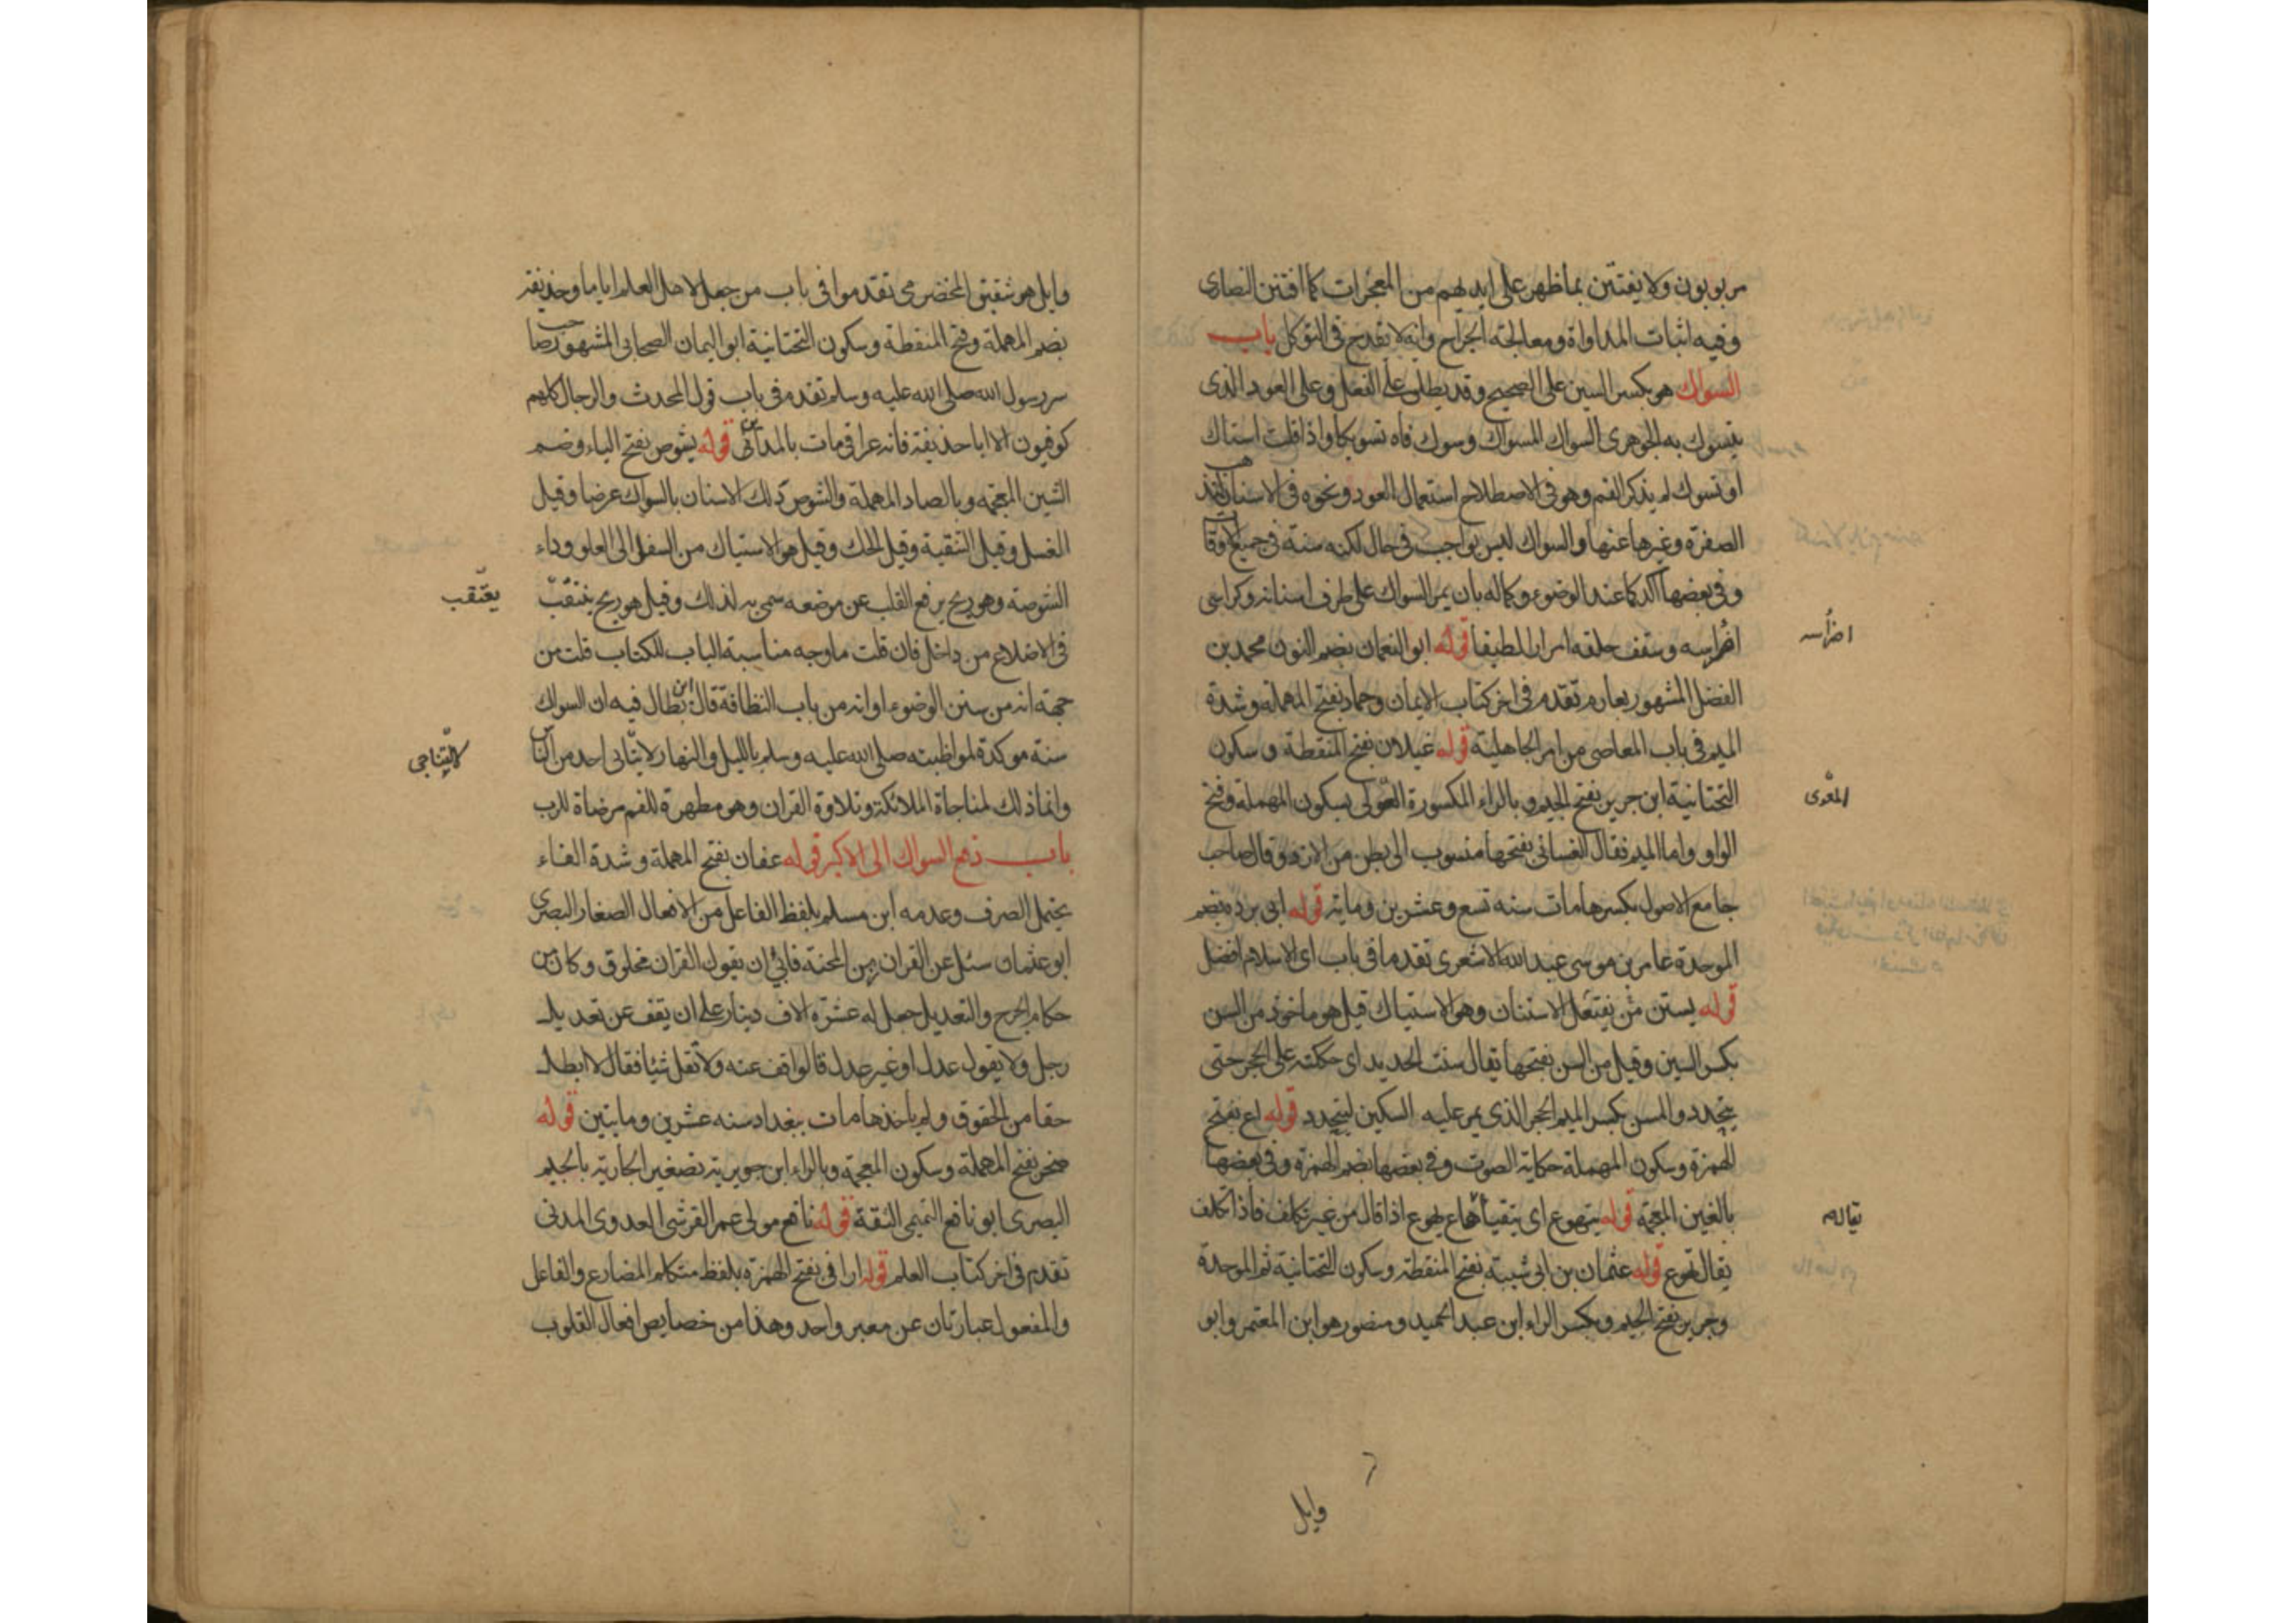 مربوبون ولا يفتتن بما ظهر على ايديهم من المعجزات كما افتتن النصارى
وفيه اثبات المداواة ومعالجة الجراح وانه لا يقدح في التوكل باب
السواك هو بكسر السين على الصحيح وقد يطلق على الفعل وعلى العود الذى
يتسوك به الجوهرى السواك المسواك وسوك فاه تسويكا واذا قلت استاك
او تسوك لم يذكر الفم وهو في الاصطلاح استعمال العود ونحوه في الاسنان ليذهب
الصفرة وغيرها عنها والسواك ليس بواجب في حال لكنه سنة في جميع الاوقات
وفي بعضها آكد كما عند الوضوء وكماله بان يمر السواك على طرف اسنانه وكراسى
اضراسه وسقف حلقه امرارا لطيفا قوله ابو النعمان بضم النون محمد بن
الفضل المشهور بعارم تقدم في اخر كتاب الايمان وحماد بفتح المهملة وشدة
الميم في باب المعاصى من امر الجاهلية قوله غيلان بفتح المنقطة وسكون
التحتانية ابن جرير بفتح الجيم وبالراء المكسورة المعولى بسكون المهملة وفتح
الواو واما الميم فقال الغسانى بفتحها منسوب الى بطن من الازد وقال صاحب
جامع الاصول بكسرها مات سنه تسع وعشرين ومايه قوله ابى برده بضم
الموحدة عامر بن موسى عبد الله الاشعرى تقدما في باب اى الاسلام افضل
قوله يستن من يفتعل الاستنان وهو الاستياك قيل هو ماخوذ من السن
بكسر السين وقيل من السن بفتحها يقال سننت الحديد اى حككته على الحجر حتى
يتحدد والمسن بكسر الميم الحجر الذى يمر عليه السكين ليتحدد قوله اع بفتح
الهمزة وسكون المهملة حكاية الصوت وفي بعضها بضم الهمزة وفي بعضها
بالغين المعجمة قوله يتهوع اى يتقيأ هاع يهوع اذا قال من غير تكلف فاذا تكلف
يقال تهوع قوله عثمان بن ابى شيبة بفتح المنقطة وسكون التحتانية ثم الموحدة
وجرير بفتح الجيم وبكسر الراء ابن عبد الحميد ومنصور هو ابن المعتمر وابو
اضراسه
وايل
وايل هو شقيق الحضرمى تقدموا في باب من جعل لاهل العلم اياما وحذيفة
بضم المهملة وفتح المنقطة وسكون التحتانية ابو اليمان الصحابى المشهور صاحب
سر رسول الله صلى الله عليه وسلم تقدم في باب قول المحدث والرجال كلهم
كوفيون الا ابا حذيفة فانه عراقي مات بالمدائن قوله يشوص بفتح الياء وضم
الشين المعجمه وبالصاد المهملة والشوص دلك الاسنان بالسواك عرضا وقيل
الغسل وقيل التنقية وقيل الحك وقيل هو الاستياك من السفل الى العلو وداء
الشوصة وهو ريح يرفع القلب عن موضعه سمى به لذلك وقيل هو ريح
في الاضلاع من داخل فان قلت ما وجه مناسبة الباب للكتاب قلت من
جهة انه من سنن الوضوء او انه من باب النظافة قال ابن بطال فيه ان السواك
سنة موكدة لمواظبته صلى الله عليه وسلم بالليل والنهار احد من الناس
وانما ذلك لمناجاة الملائكة وتلاوة القران وهو مطهرة للفم مرضاة للرب
باب دفع السواك الى الاكبر قوله عفان بفتح المهملة وشدة الفاء
يحتمل الصرف وعدمه ابن مسلم بلفظ الفاعل من الافعال الصفار البصرى
ابو عثمان سئل عن القران زمن المحنة فابى ان يقول القران مخلوق وكان من
حكام الجرح والتعديل جعل له عشرة الاف دينار على ان يقف عن تعديل
رجل ولا يقول عدل او غير عدل قالوا قف عنه ولا تقل شيئا فقال لا ابطل
حقا من الحقوق ولم ياخذها مات ببغداد سنه عشرين وماتين قوله
صخر بفتح المهملة وسكون المعجمة وبالراء ابن جويرية تصغير الجارية بالجيم
البصرى ابو نافع التميمى الثقة قوله نافع مولى عمر القرشى العدوى المدنى
تقدم في اخر كتاب العلم قوله ارانى بفتح الهمزة بلفظ متكلم المضارع والفاعل
والمفعول عبارتان عن معبر واحد وهذا من خصايص افعال القلوب